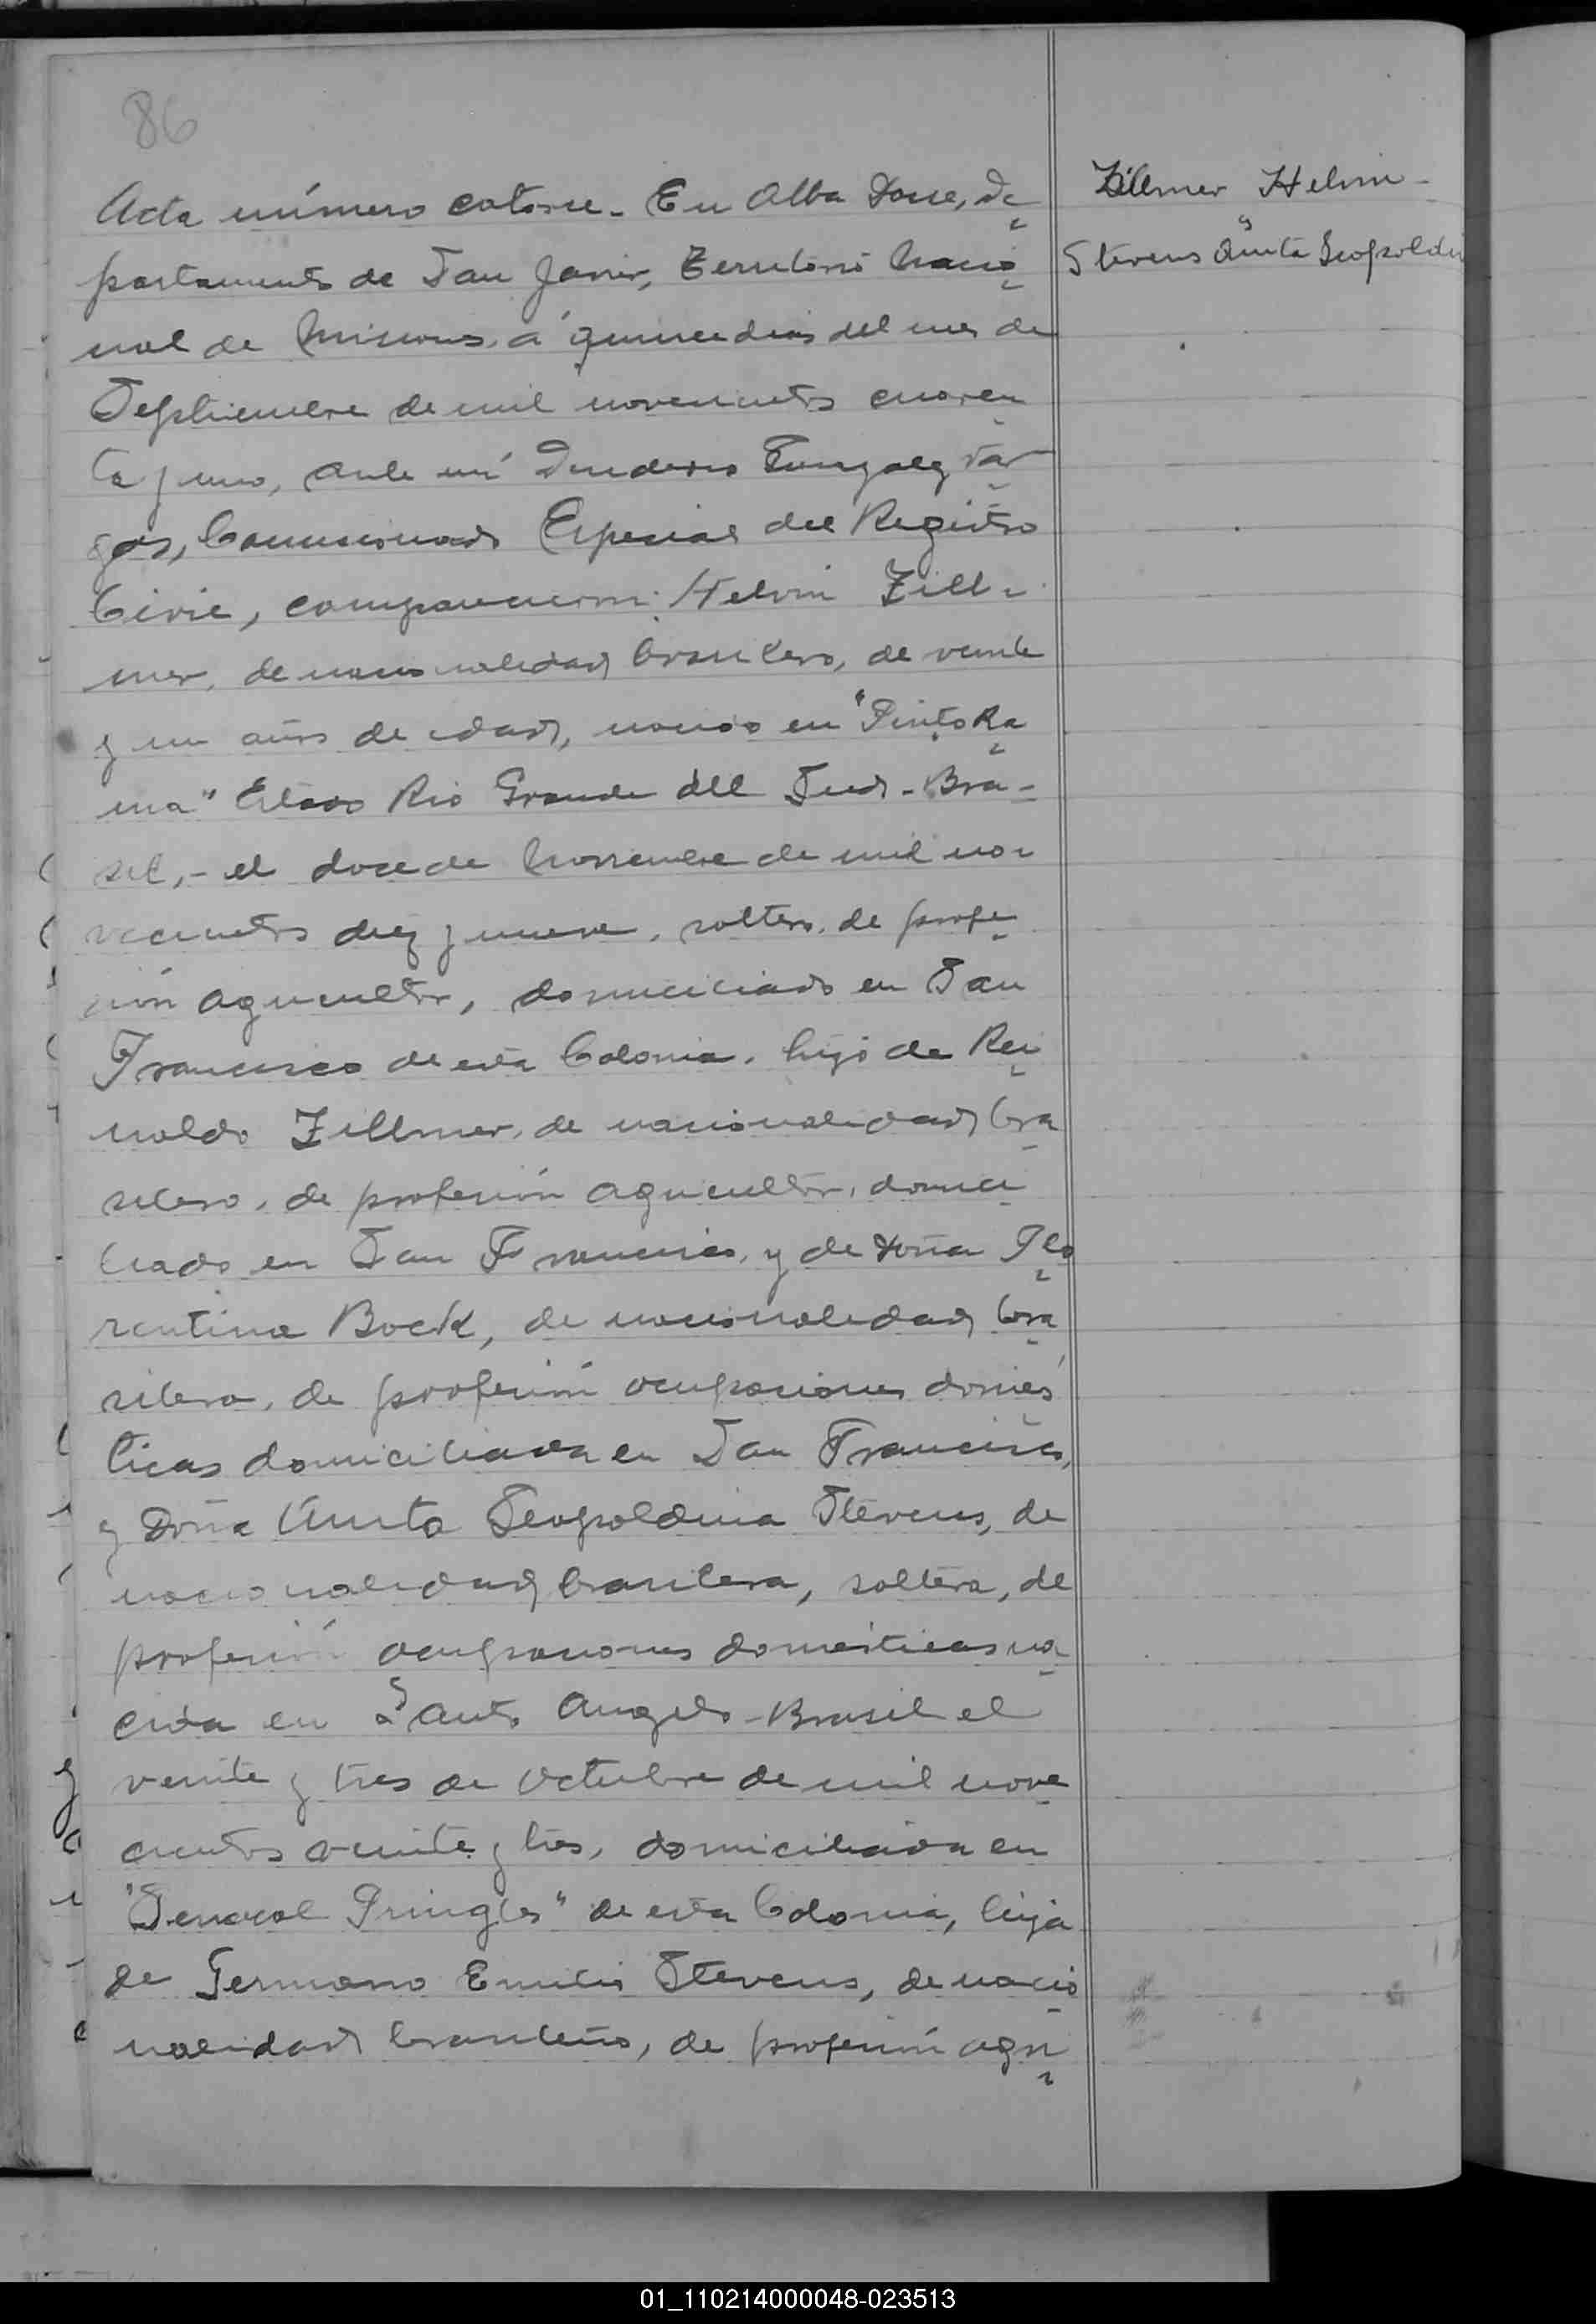 86
Acta número catorce. En Alba Posse, de
partamento de San Javier, Territorio Nacio
nal de Misiones, á quince dias del mes de
Septiembre de mil novecientos cuaren
ta y uno, ante mí Desiderio Gonzalez Var
gas, Comisionado Especial del Registro
Civil, comparecieron: Helvin Zill-
mer, de nacionalidad brasilero, de veinte
y un años de edad, nacido en "Pinto Ra
ma" Estado Rio Grande del Sud - Bra-
sil, - el doce de Noviembre de mil no-
vecientos diez y nueve, soltero, de profe
sión agricultor, domiciliado en San
Francisco de esta Colonia, hijo de Rei
noldo Zillmer, de nacionalidad bra
silero, de profesión agricultor, domici
liado en San Francisco, y de doña Flo
rentina Bock, de nacionalidad bra
silera, de profesión ocupaciones domés
ticas domiciliada en San Francisco,
y Doña Anita Leopoldina Stevens, de
nacionalidad brasilera, soltera, de
profesión ocupaciones domesticas na
cida en Santo Angelo - Brasil el
veinte y tres de Octubre de mil nove
cientos veinte y tres, domiciliada en
"General Pringles" de esta Colonia, hija
de Germano Emilio Stevens, de nacio
nalidad brasileño, de profesión agri
Zillmer Helvin -
y
Stevens Anita Leopoldin
01_110214000048-023513